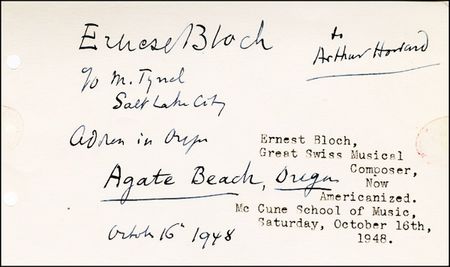 Ernest Bloch
to
Arthur Howard
c/o M. Tyrrel
Salt Lake City
Address in Oregon
Agate Beach, Oregon
October 16th 1948
Ernest Bloch,
Great Swiss Musical
Composer,
Now
Americanized.
Mc Cune School of Music,
Saturday, October 16th,
1948.